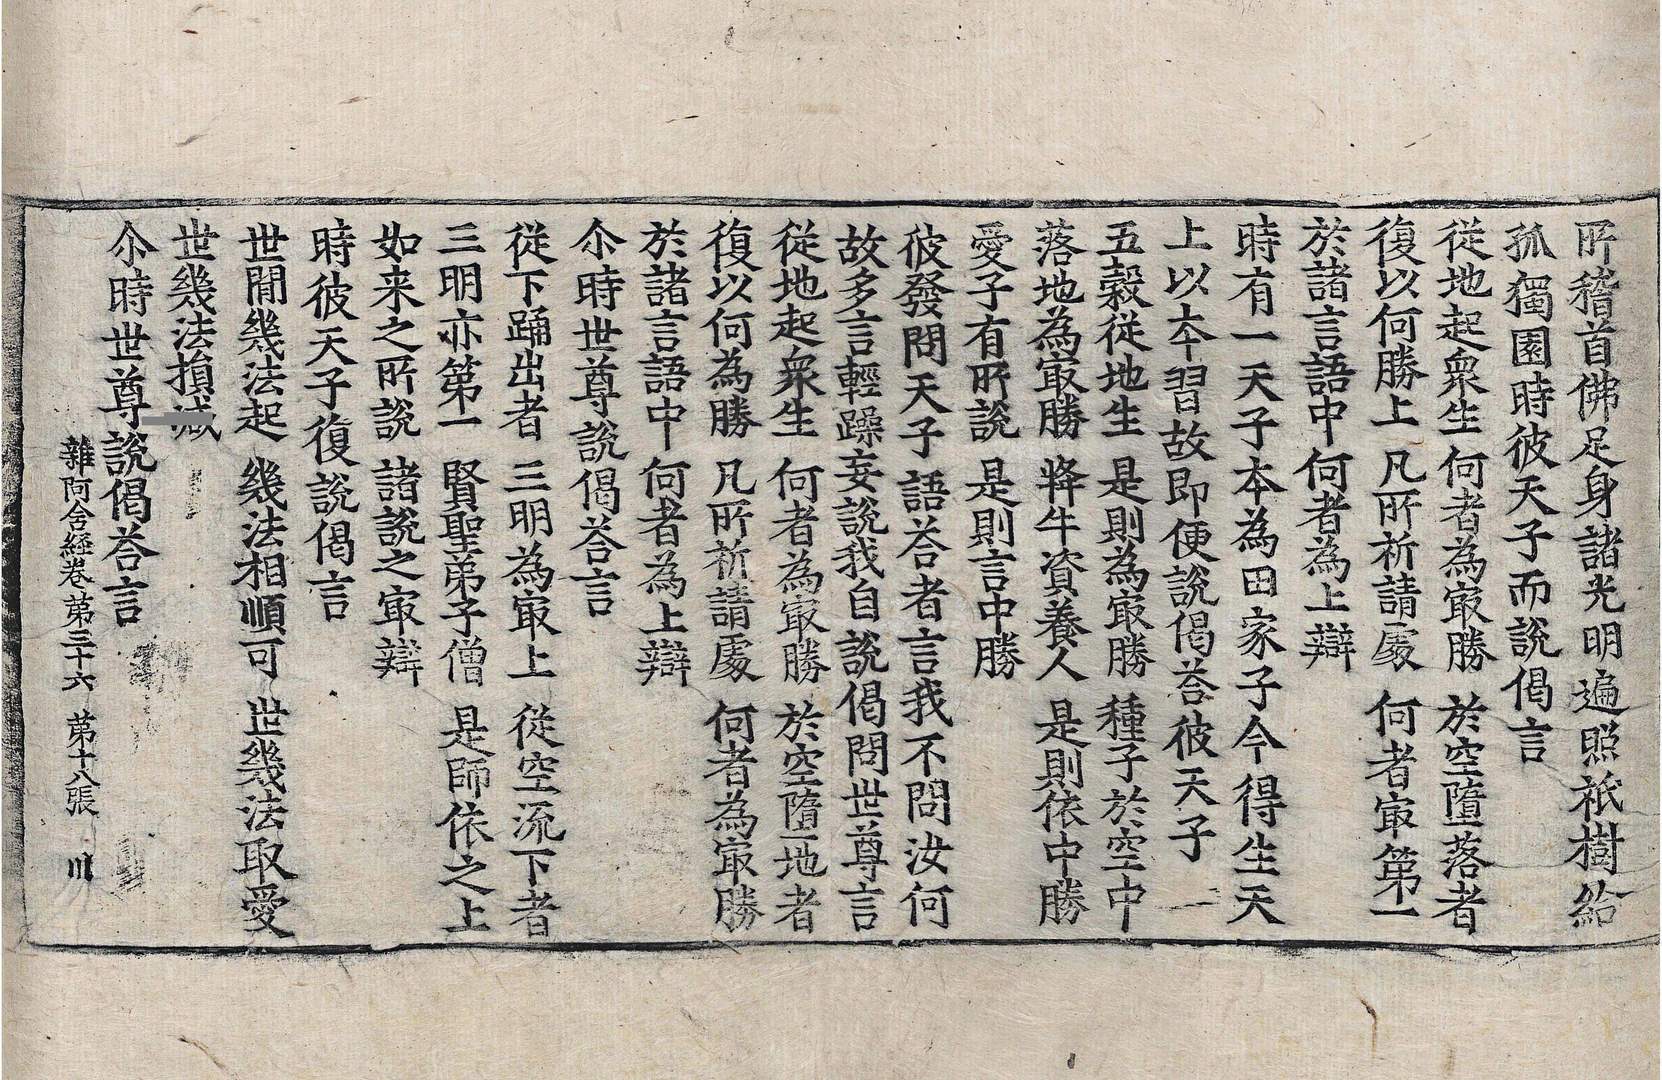 所稽首佛足身諸光明遍照祇樹給
孤獨園時彼天子而說偈言
從地起衆生　何者為㝡勝　於空墮落者
復以何勝上　凡所祈請處　何者㝡第一
於諸言語中　何者為上辯
時有一天子本為田家子今得生天
上以本習故即便說偈荅彼天子
五穀從地生　是則為㝡勝　種子於空中
落地為㝡勝　犎牛資養人　是則依中勝
愛子有所說　是則言中勝
彼發問天子語荅者言我不問汝何
故多言輕躁妄說我自說偈問世尊言
從地起衆生　何者為㝡勝　於空墮地者
復以何為勝　凡所祈請處　何者為㝡勝
於諸言語中　何者為上辯
尒時世尊說偈荅言
從下踊出者　三明為㝡上　從空流下者
三明亦第一　賢聖弟子僧　是師依之上
如来之所說　諸說之㝡辯
時彼天子復說偈言
世間幾法起　幾法相順可　世幾法取愛
世幾法損減
尒時世尊說偈荅言
雜阿含經卷第三十六　第十八張　川